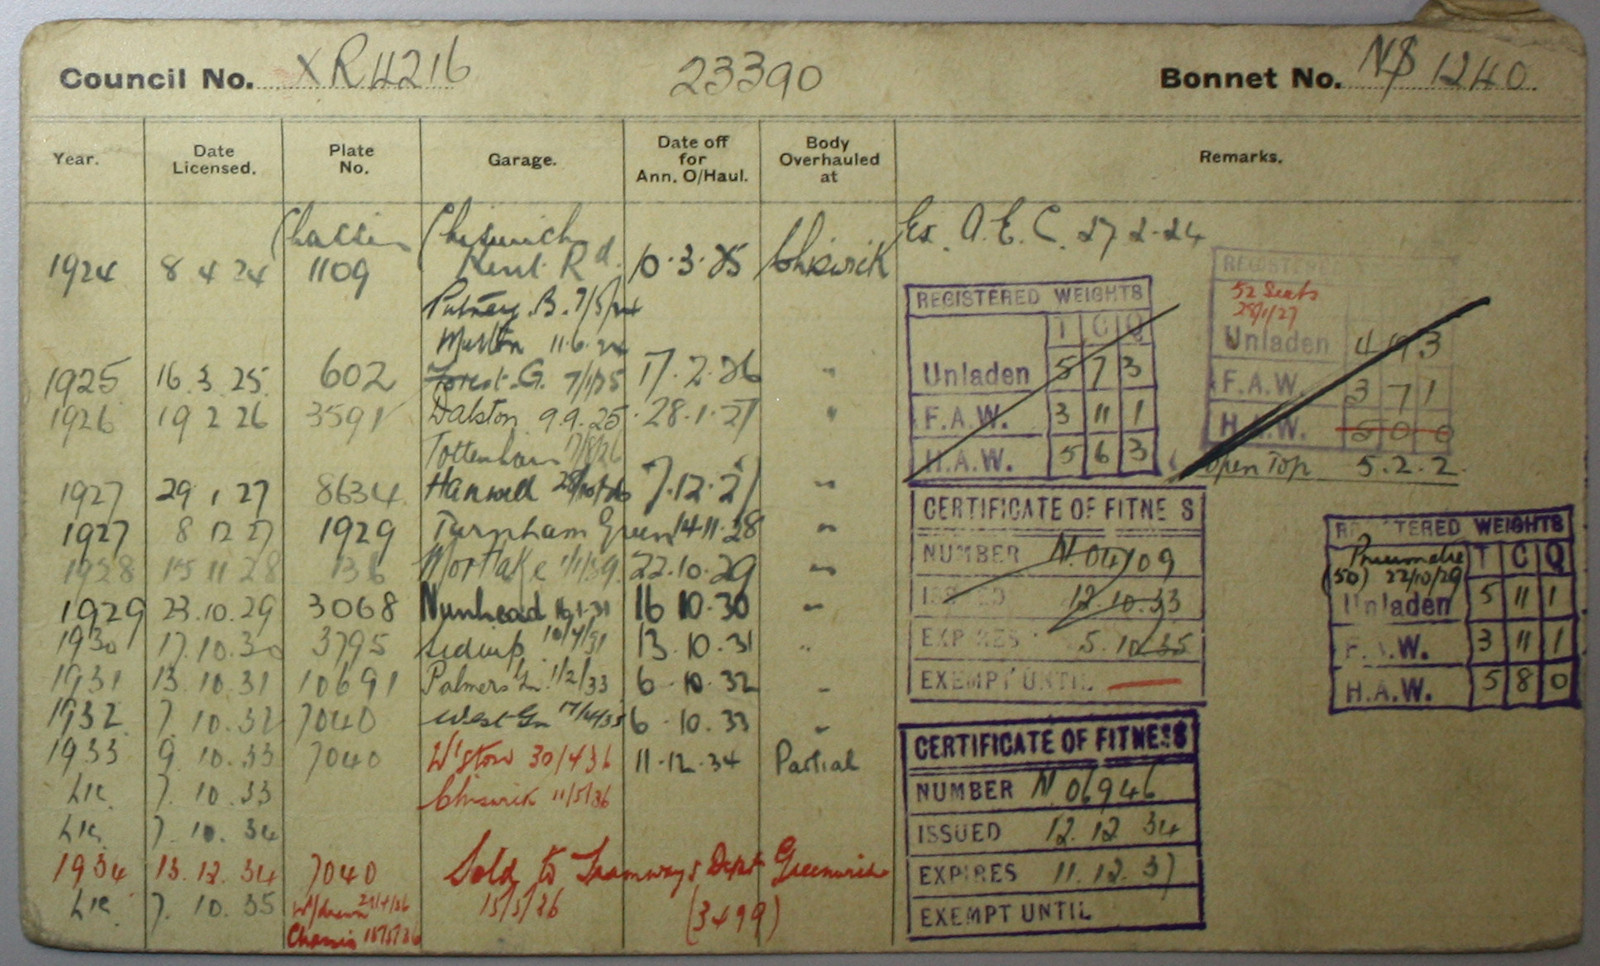 Council No. XR4216 23390 Bonnet No. NS 1240
Year. Date Licensed. Plate No. Garage. Date off for Ann. O/Haul. Body Overhauled at Remarks.
Chassis Chiswick Ex. A.E.C. 27 2-24
1924 8 4 24 1109 Kent Rd. 10.3.25 Chiswick
Putney. B. 7/5/24
Merton 11.6.24
1925 16 3 25. 602 Forest G. 7/1/25 17.2.26 "
1926 19 2 26 3591 Dalston 9.9.25 28.1.27 "
Tottenham 17/8/26
1927 29 1 27 8634 Hanwell 28/10/26 7.12.27 "
1927 8 12 27 1929 Turnham Green 14.11.28 "
1928 15 11 28 136 Mortlake 1/1/29. 22.10.29 "
1929 23.10.29 3068 Nunhead 16.1.31 16 10.30 "
1930 17.10.30 3795 Sidcup. 10/4/31 13.10.31 "
1931 13.10.31 10691 Palmers Gn. 1/2/33 6.10.32 "
1932 7.10.32 7040 West Gn 7/4/33 6.10.33 "
1933 9.10.33 7040 W'stow 30/4/36 11.12.34 Partial
Lic. 7.10.33 Chiswick 11/5/36
Lic. 7.10.34
1934 13.12.34 7040 Sold to Tramways Dept Greenwich
Lic 7.10.35 W/drawn 29/4/36 15/5/36 (3499)
Chassis 15/5/36
REGISTERED WEIGHTS
T C Q
Unladen 5 7 3
F.A.W. 3 11 1
H.A.W. 5 6 3
REGISTERED
52 Seats
28/1/27
Unladen 4 3
F.A.W. 3 7 1
H.A.W. 5 0 0
Open Top 5.2.2.
CERTIFICATE OF FITNE S
NUMBER N.04709
ISSUED 12.10.33
EXPIRES 5.10.35
EXEMPT UNTIL
REGISTERED WEIGHTS
Pneumatic T C Q
(50) 22/10/29
Unladen 5 11 1
F.A.W. 3 11 1
H.A.W. 5 8 0
CERTIFICATE OF FITNESS
NUMBER N 06946
ISSUED 12.12 34
EXPIRES 11.12.37
EXEMPT UNTIL